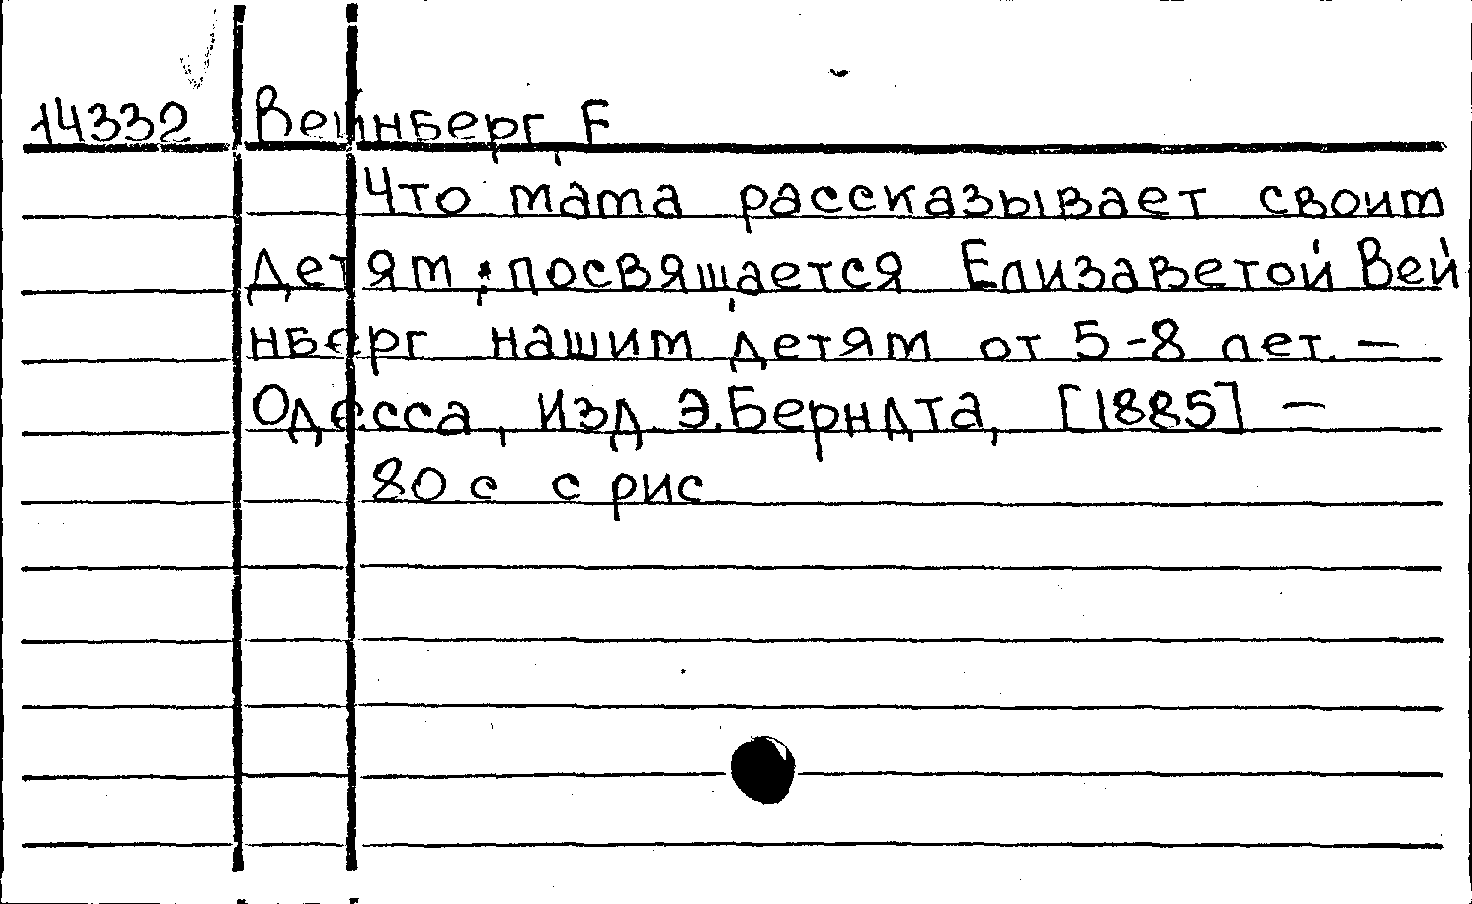 14332 Вейнберг, Е
Что мама рассказывает своим
детям: посвящается Елизаветой Вей
нберг нашим детям от 5-8 лет. —
Одесса, Изд. Э.Берндта, [1885] —
80 с с рис